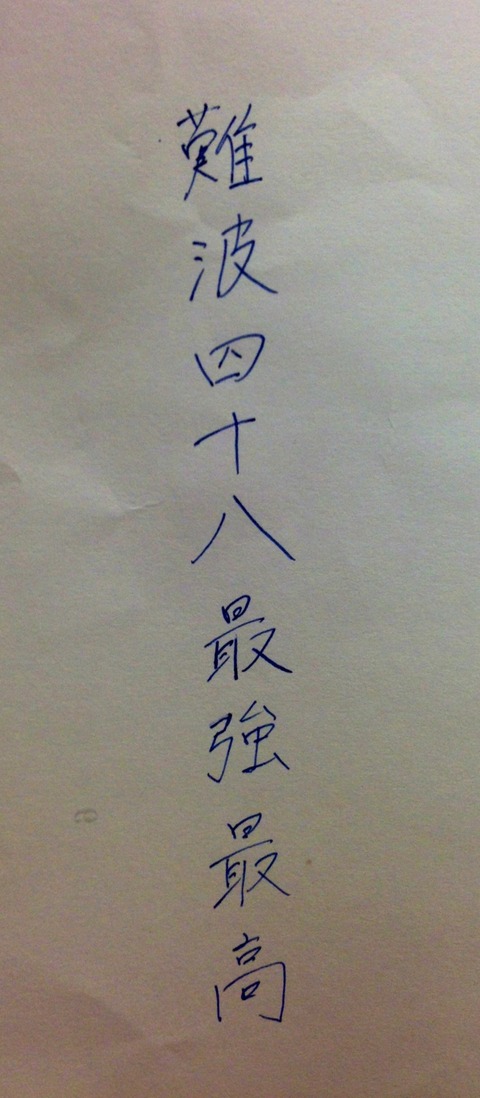 難波四十八最強最高